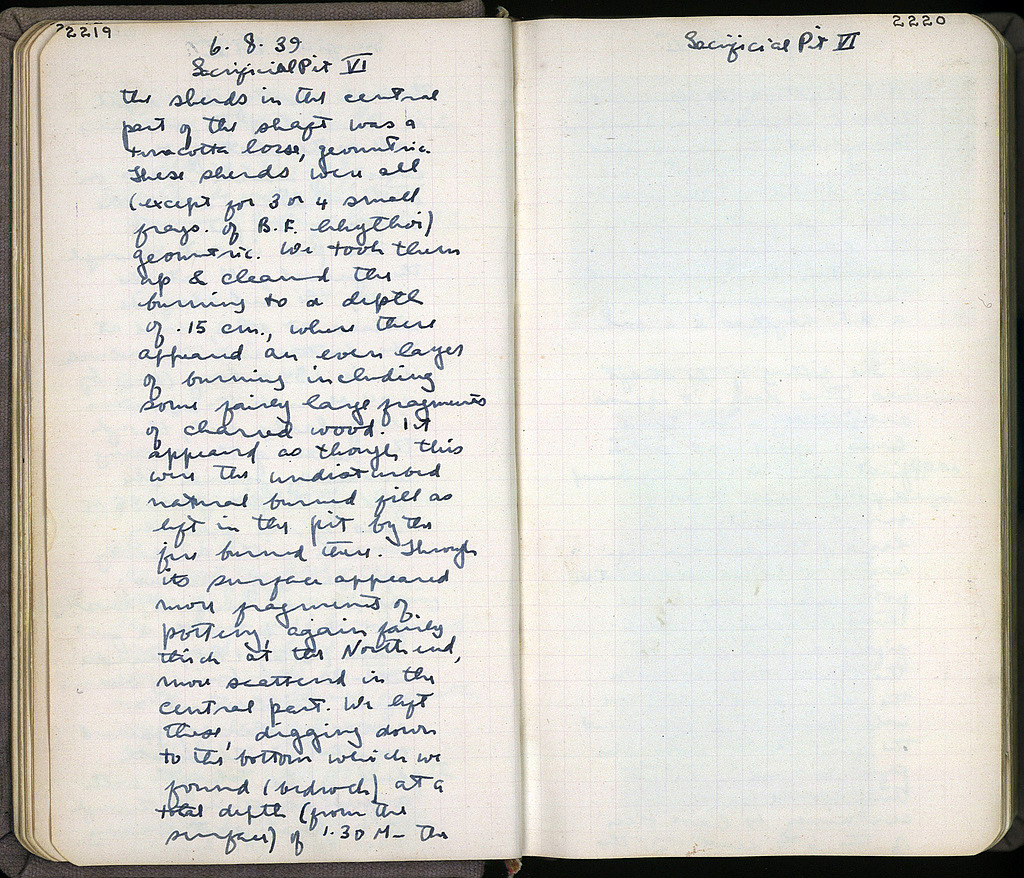 2219
6. 8. 39
Sacrificial Pit VI
the sherds in the central
part of the shaft was a
terracotta horse, geometric.
These sherds were all
(except for 3 or 4 small
frags. of B.F. rhytoi)
geometric. We took them
up & cleaned the
burning to a depth
of .15 cm., where there
appeared an even layer
of burning including
some fairly large fragments
of charred wood. It
appeared as though this
were the undisturbed
natural burned fill as
left in the pit by the
fire burned there. Through
its surface appeared
more fragments of
pottery, again fairly
thick at the North end,
more scattered in the
central part. We left
these, digging down
to the bottom which we
found (bedrock) at a
total depth (from the
surface) of 1.30 M – The
2220
Sacrificial Pit VI